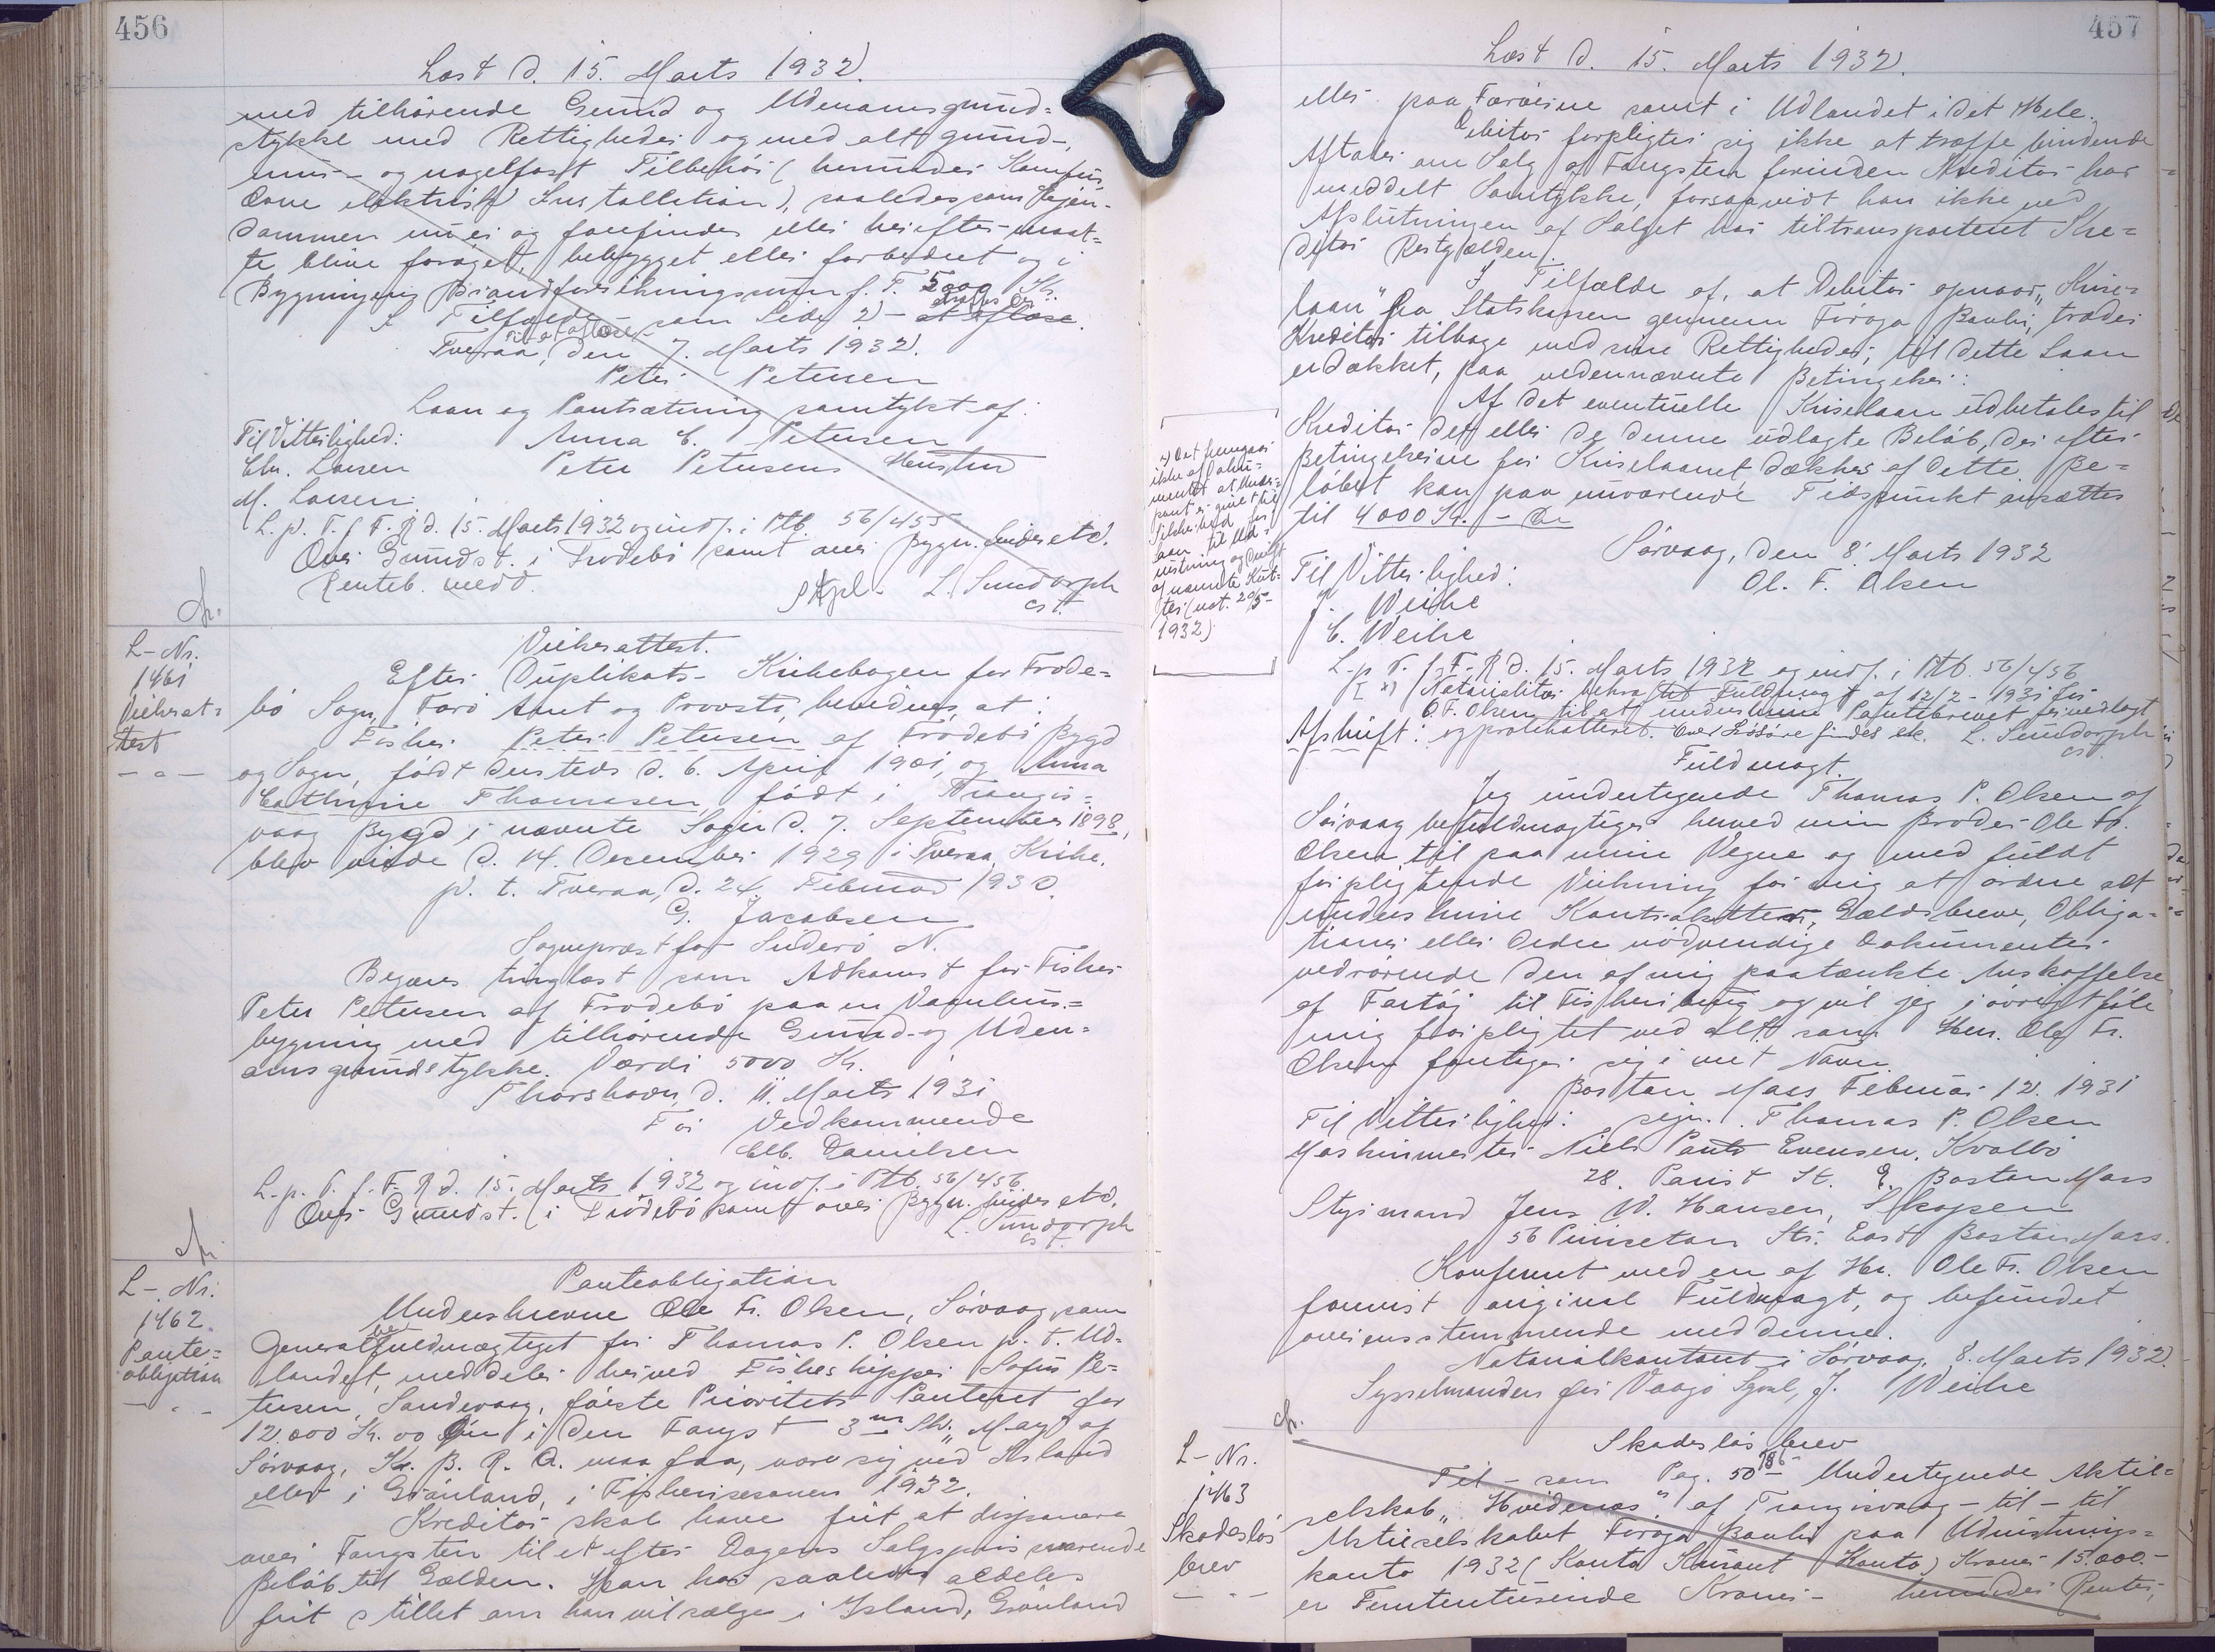 456
Læst d. 15. Marts 1932.
med tilhørende Grund og Udenomsgrund=
stykke med Rettigheder og med alt grund-,
mur- og nagelfast Tilbehør (herunder Komfur,
Ovne elektrisk Installation), saaledes som Ejen-
dommen nu er og forefindes eller herefter maat=
te blive forøget, bebygget eller forbedret og i
Bygningens Brandforsikringssum f. T. 5000 Kr.
I Tilfælde - som Side 2) - at afløse.
Tveraa, den 7. Marts 1932.
Peter Petersen
Laan og Pantsætning samtykt af:
Til Vitterlighed: Anna C. Petersen
Chr. Larsen Peter Petersens Hustru
M. Larsen.
L. p. T. f. F. R. d. 15. Marts 1932 og indf. i Ptb. 56/455
Over Grundst. i Frodebø samt over Bygn. findes etc.
Renteb. medd. L. Sundorph
cst.
L-Nr.
1461
Vielsesat=
test
Vielsesattest.
Efter Duplikats- Kirkebogen for Frode=
bø Sogn, Færø Amt og Provsti, bevidnes, at:
Fisker Peter Petersen af Frodebø Bygd
og Sogn, født dersteds d. 6. April 1901, og Anna
Cathrine Thomasen, født i Trangis=
vaag Bygd i nævnte Sogn d. 7. September 1898,
blev viede d. 14. December 1929 i Tveraa Kirke.
p. t. Tveraa, d. 24. Februar 1930.
G. Jacobsen
Sognepræst for Suderø N.
Begæres tinglæst som Adkomst for Fisker
Peter Petersen af Frodebø paa en Vaanhus=
bygning med tilhørende Grund- og Uden=
omsgrundstykke. Værdi 5000 Kr.
Thorshavn, d. 11. Marts 1931
For Vedkommende
Chr. Danielsen
L. p. T. f. F. R. d. 15. Marts 1932 og indf. i Ptb. 56/456.
Over Grundst. i Frodebø samt over Bygn. findes etc.
L. Sundorph
cst.
L-Nr.
1462.
Pante=
obligation
Panteobligation
Underskrevne Ole Fr. Olsen, Sørvaag, som
Generalbefuldmægtiget for Thomas P. Olsen p. t. Ud=
landet, meddeler herved Fiskeskipper Sofus Pe=
tersen, Sandevaag, første Prioritets Panteret for
12.000 Kr. 00 Øre i den Fangst 3m Sk. "May" af
Sørvaag, K. B. R. D. maa faa, være sig ved Island
eller i Grønland, i Fiskerisæsonen 1932.
Kreditor skal have frit at disponere
over Fangsten til et efter Dagens Salgspris svarende
Beløb til Gælden. Han har saaledes aldeles
frit stillet om han vil sælge i Island, Grønland
457
Læst d. 15. Marts 1932.
eller paa Færøerne samt i Udlandet i det Hele.
Debitor forpligter sig ikke at træffe bindende
Aftaler om Salg af Fangsten forinden Kreditor har
meddelt Samtykke, forsaavidt han ikke ved
Afslutningen af Salget har tiltransporteret Kre=
ditor Restgælden.
I Tilfælde af, at Debitor opnaar "Krise-
laan" fra Statskassen gennem Føroya Banki, træder
Kreditor tilbage med sine Rettigheder; til dette Laan
er dækket, paa nedennævnte Betingelser:
Af det eventuelle Kriselaan udbetales til
Kreditor det eller de denne udlagte Beløb, der efter
Betingelserne for Kriselaanet dækkes af dette. Be=
løbet kan paa nuværende Tidspunkt ansættes
til 4000 Kr. - Øre
Sørvaag, den 8. Marts 1932
Til Vitterlighed: Ol. F. Olsen
J. Weihe
C. Weihe
x) Det fremgaar
ikke af Doku=
mentet at Under=
pant er givet til
Sikkerhed for
Laan til Ud=
rustning og Drift
af nævnte Kut=
ter (not. 20/5-
1932)
L. p. T. f. F. R. d. 15. Marts 1932 og indf. i Ptb. 56/456
x) Notarialiter bekræftet Fuldmagt af 12/2 - 1931 for
O. F. Olsen til at underskrive Pantebrevet er vedlagt
Afskrift: og protokolleret. Over Løsøre findes etc. L. Sundorph
cst.
Fuldmagt.
Jeg undertegnede Thomas P. Olsen af
Sørvaag befuldmægtiger herved min Broder Ole Fr.
Olsen til paa mine Vegne og med fuldt
forpligtende Virkning for mig at ordne alt
underskrive Kontrakter, Gældsbreve, Obliga=
tioner eller andre nødvendige Dokumenter
vedrørende den af mig paatænkte Anskaffelse
af Fartøj til Fiskeribrug og vil jeg i øvrigt føle
mig forpligtet ved alt som Herr. Ole Fr.
Olsen foretager sig i mit Navn.
Boston Mass Februar 12. 1931
Til Vitterlighed: sign. Thomas P. Olsen
Maskinmester Niels Evensen, Kvalbø
28. Paris St. E. Boston Mass
Styrmand Jens W. Hansen, Skopen
56 Prinseton Str. East Boston Mass.
Konferert med en af Hr. Ole Fr. Olsen
forevist original Fuldmagt, og befundet
overensstemmende med denne.
Notarialkontoret i Sørvaag, 8. Marts 1932.
Sysselmanden for Vaagø Syssel, J. Weihe
L-Nr.
1463
Skadesløs
brev
Skadesløsbrev
Til - som Pag. 50 - Undertegnede Aktie=
selskab "Hvidenæs" af Trangisvaag - til - til
Aktieselskabet Føroya Banki paa Udrustnings=
konto 1932 (Konto Kurant Konto) Kroner 15.000.-
er Femtentusinde Kroner - herunder Renter,